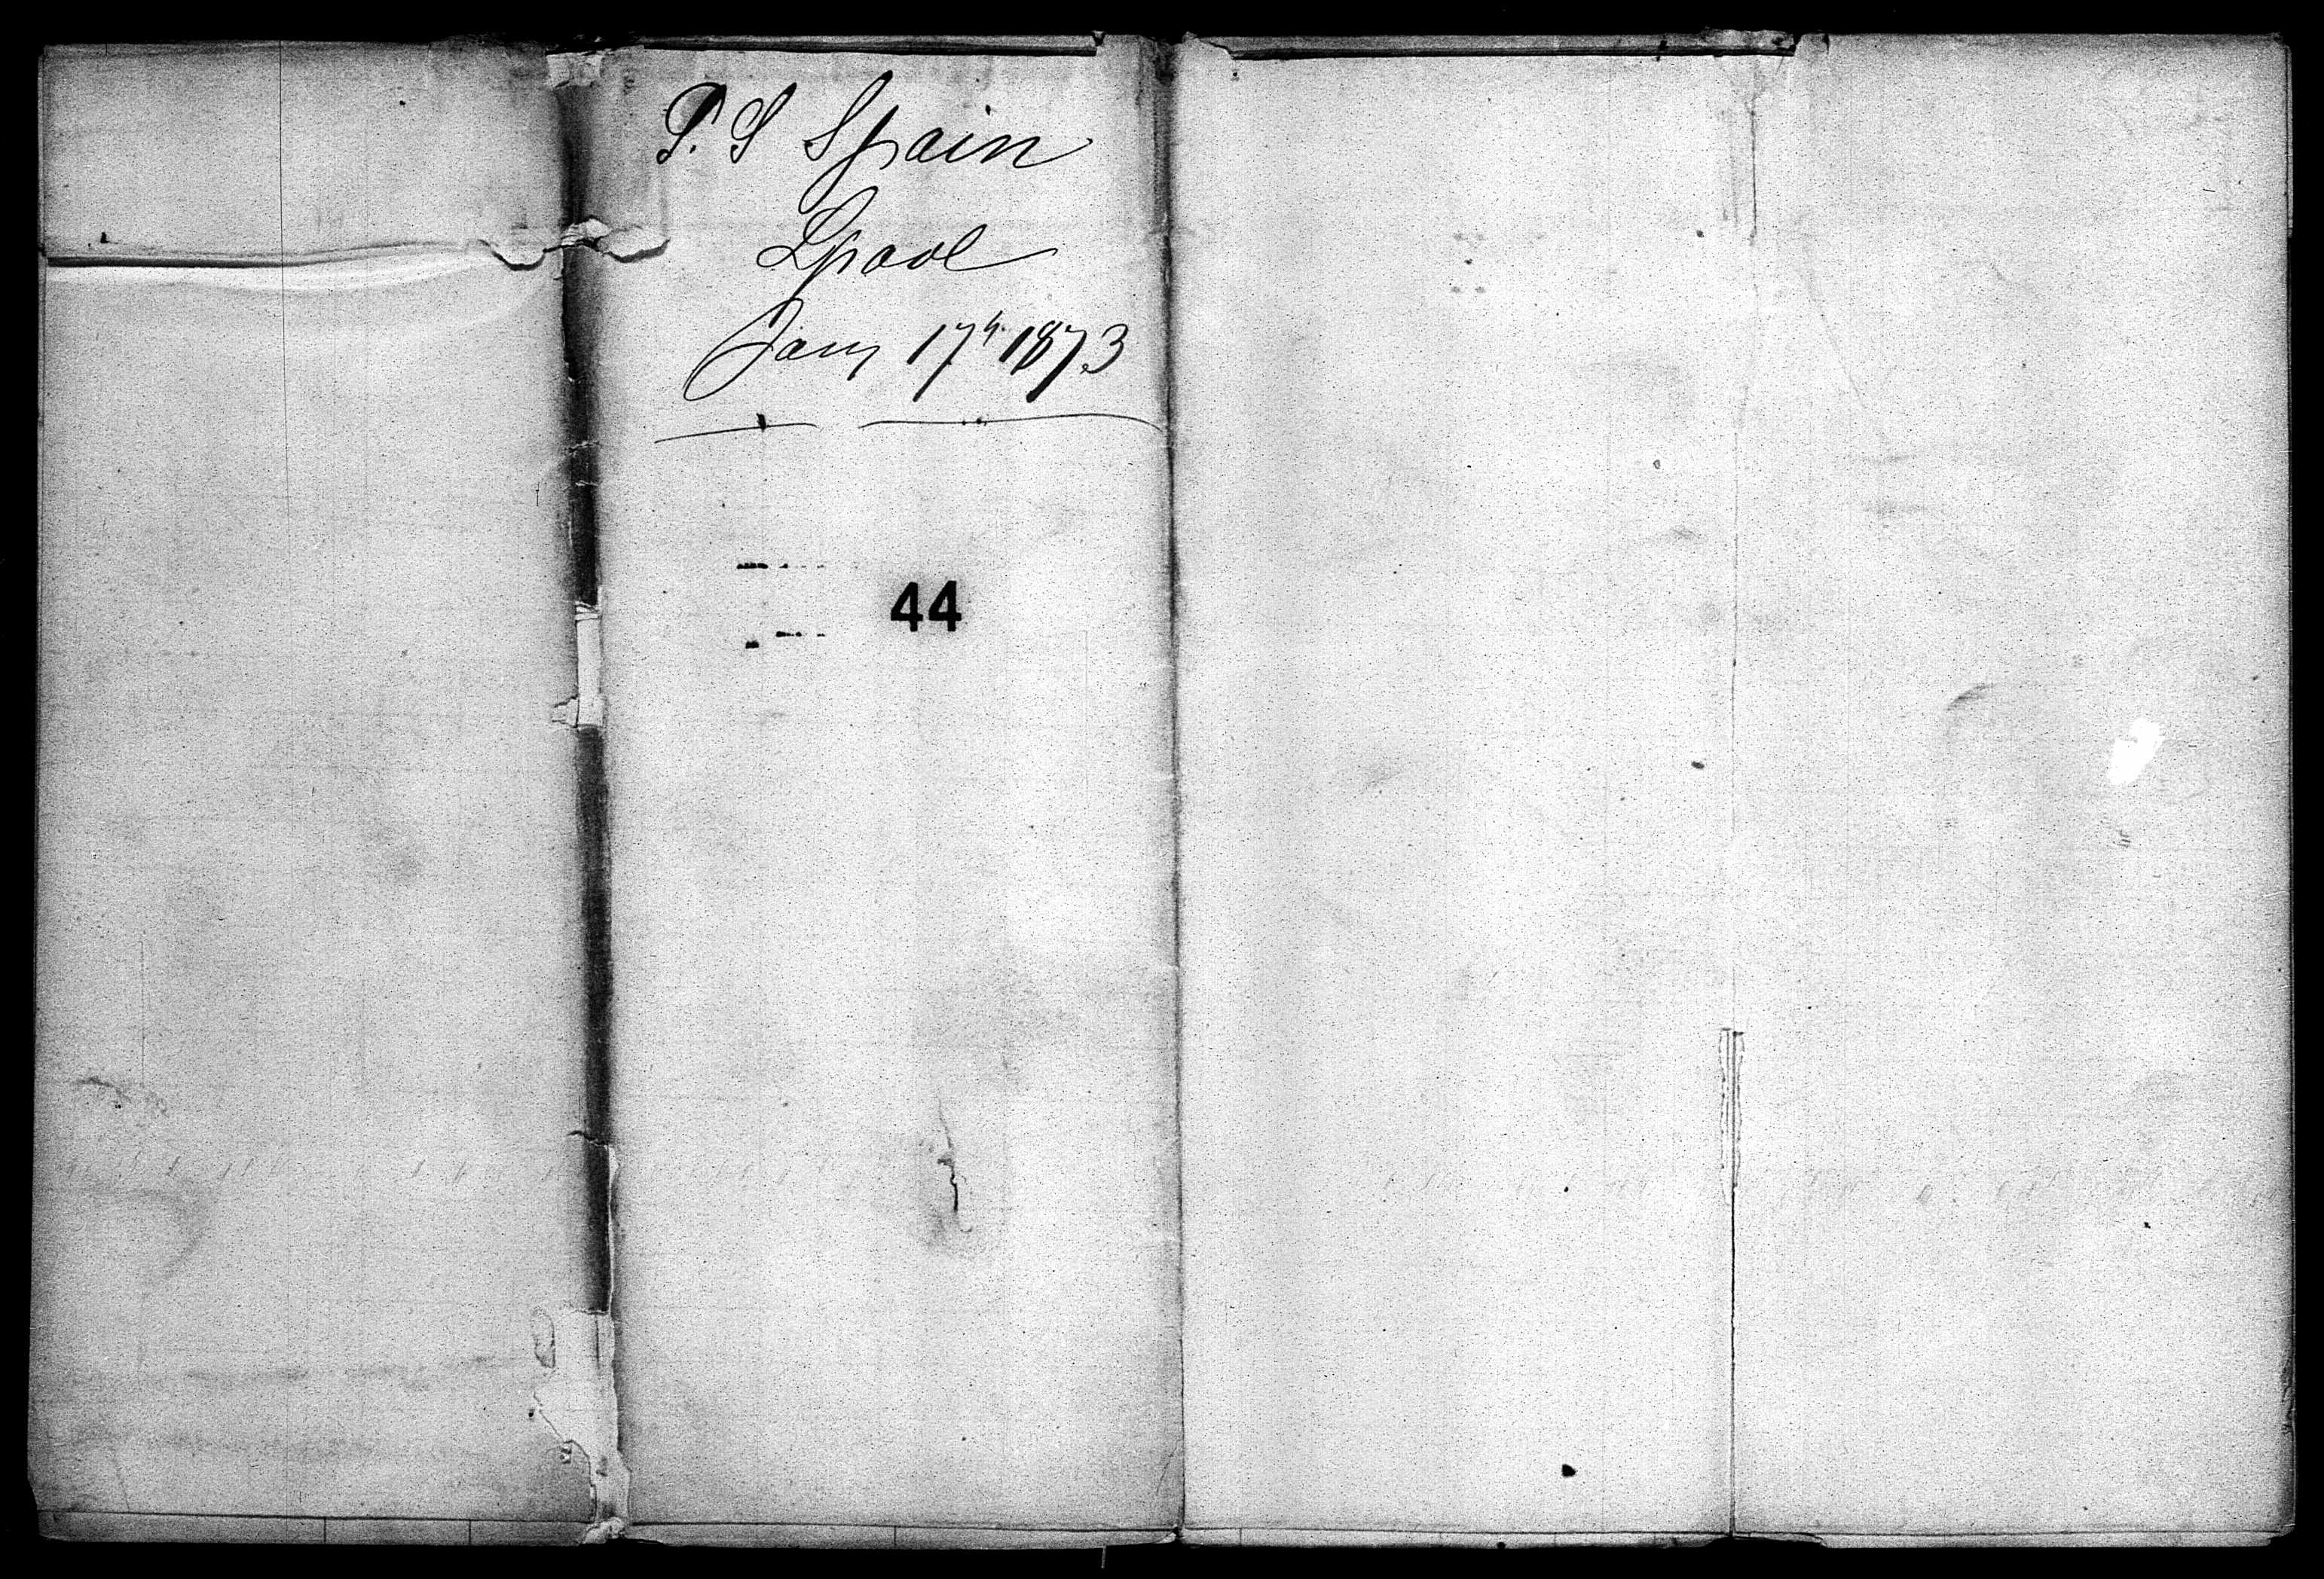 P. S Spain
Lpool
Jany 17th 1873
44